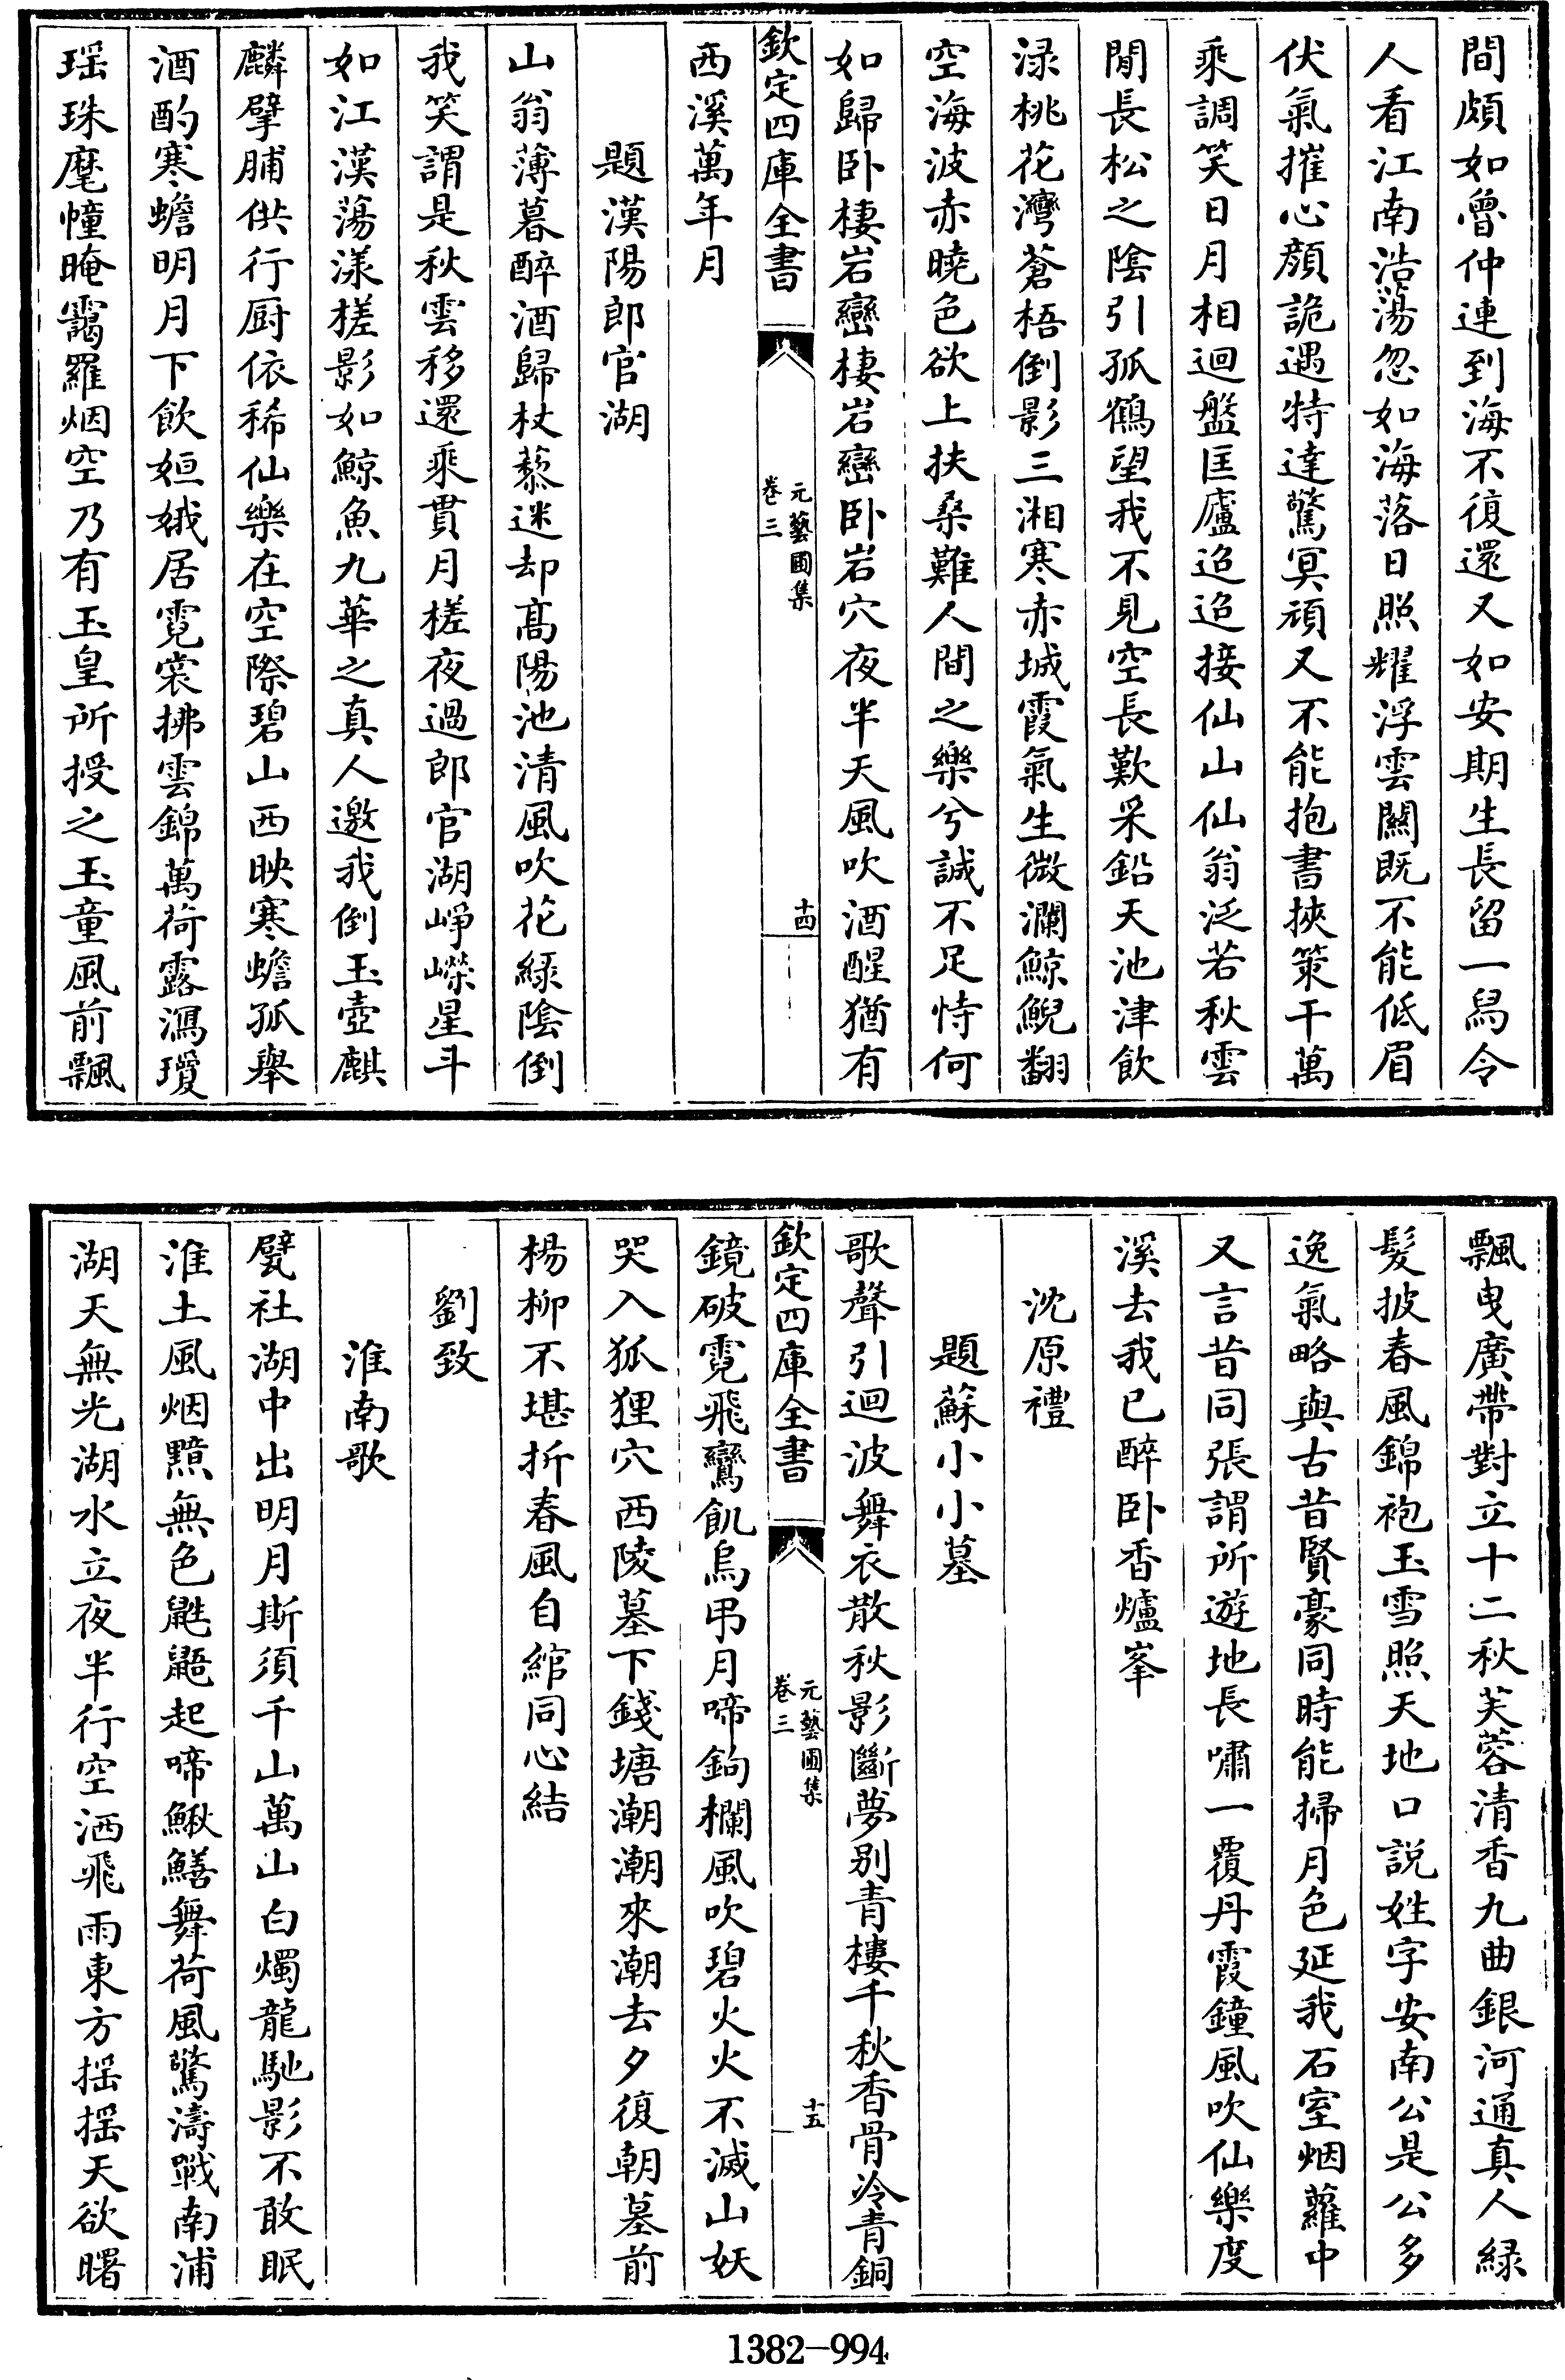 間頗如魯仲連到海不復還又如安期生長留一舄令
人看江南浩蕩忽如海落日照耀浮雲關既不能低眉
伏氣摧心顔詭遇特達驚冥頑又不能抱書挾策干萬
乘調笑日月相迴盤匡廬迢迢接仙山仙翁泛若秋雲
閒長松之陰引孤鶴望我不見空長歎采鉛天池津飲
渌桃花灣蒼梧倒影三湘寒赤城霞氣生微瀾鯨鯢翻
空海波赤曉色欲上扶桑難人間之樂兮誠不足恃何
如歸卧棲岩巒棲岩巒卧岩穴夜半天風吹酒醒猶有
欽定四庫全書
元藝圃集
卷三
十四
西溪萬年月
題漢陽郎官湖
山翁薄暮醉酒歸杖藜迷却髙陽池清風吹花緑陰倒
我笑謂是秋雲移還乘貫月槎夜過郎官湖崢嶸星斗
如江漢蕩漾槎影如鯨魚九華之真人邀我倒玉壺麒
麟擘脯供行厨依稀仙樂在空際碧山西映寒蟾孤舉
酒酌寒蟾明月下飲姮娥居霓裳拂雲錦萬荷露瀉瓊
瑶珠麾幢晻靄羅烟空乃有玉皇所授之玉童風前飄
飄曳廣帶對立十二秋芙蓉清香九曲銀河通真人緑
髮披春風錦袍玉雪照天地口説姓字安南公是公多
逸氣略與古昔賢豪同時能掃月色延我石室烟蘿中
又言昔同張謂所遊地長嘯一覆丹霞鐘風吹仙樂度
溪去我已醉卧香爐峯
沈原禮
題蘇小小墓
歌聲引迴波舞衣散秋影斷夢别青樓千秋香骨冷青銅
欽定四庫全書
元藝圃集
卷三
十五
鏡破霓飛鸞飢烏弔月啼鉤欄風吹碧火火不滅山妖
哭入狐狸穴西陵墓下錢塘潮潮來潮去夕復朝墓前
楊柳不堪折春風自綰同心結
劉致
淮南歌
甓社湖中出明月斯須千山萬山白燭龍馳影不敢眠
淮土風烟黯無色鼪鼯起啼鰍鱔舞荷風驚濤戰南浦
湖天無光湖水立夜半行空洒飛雨東方摇摇天欲曙
1382-994